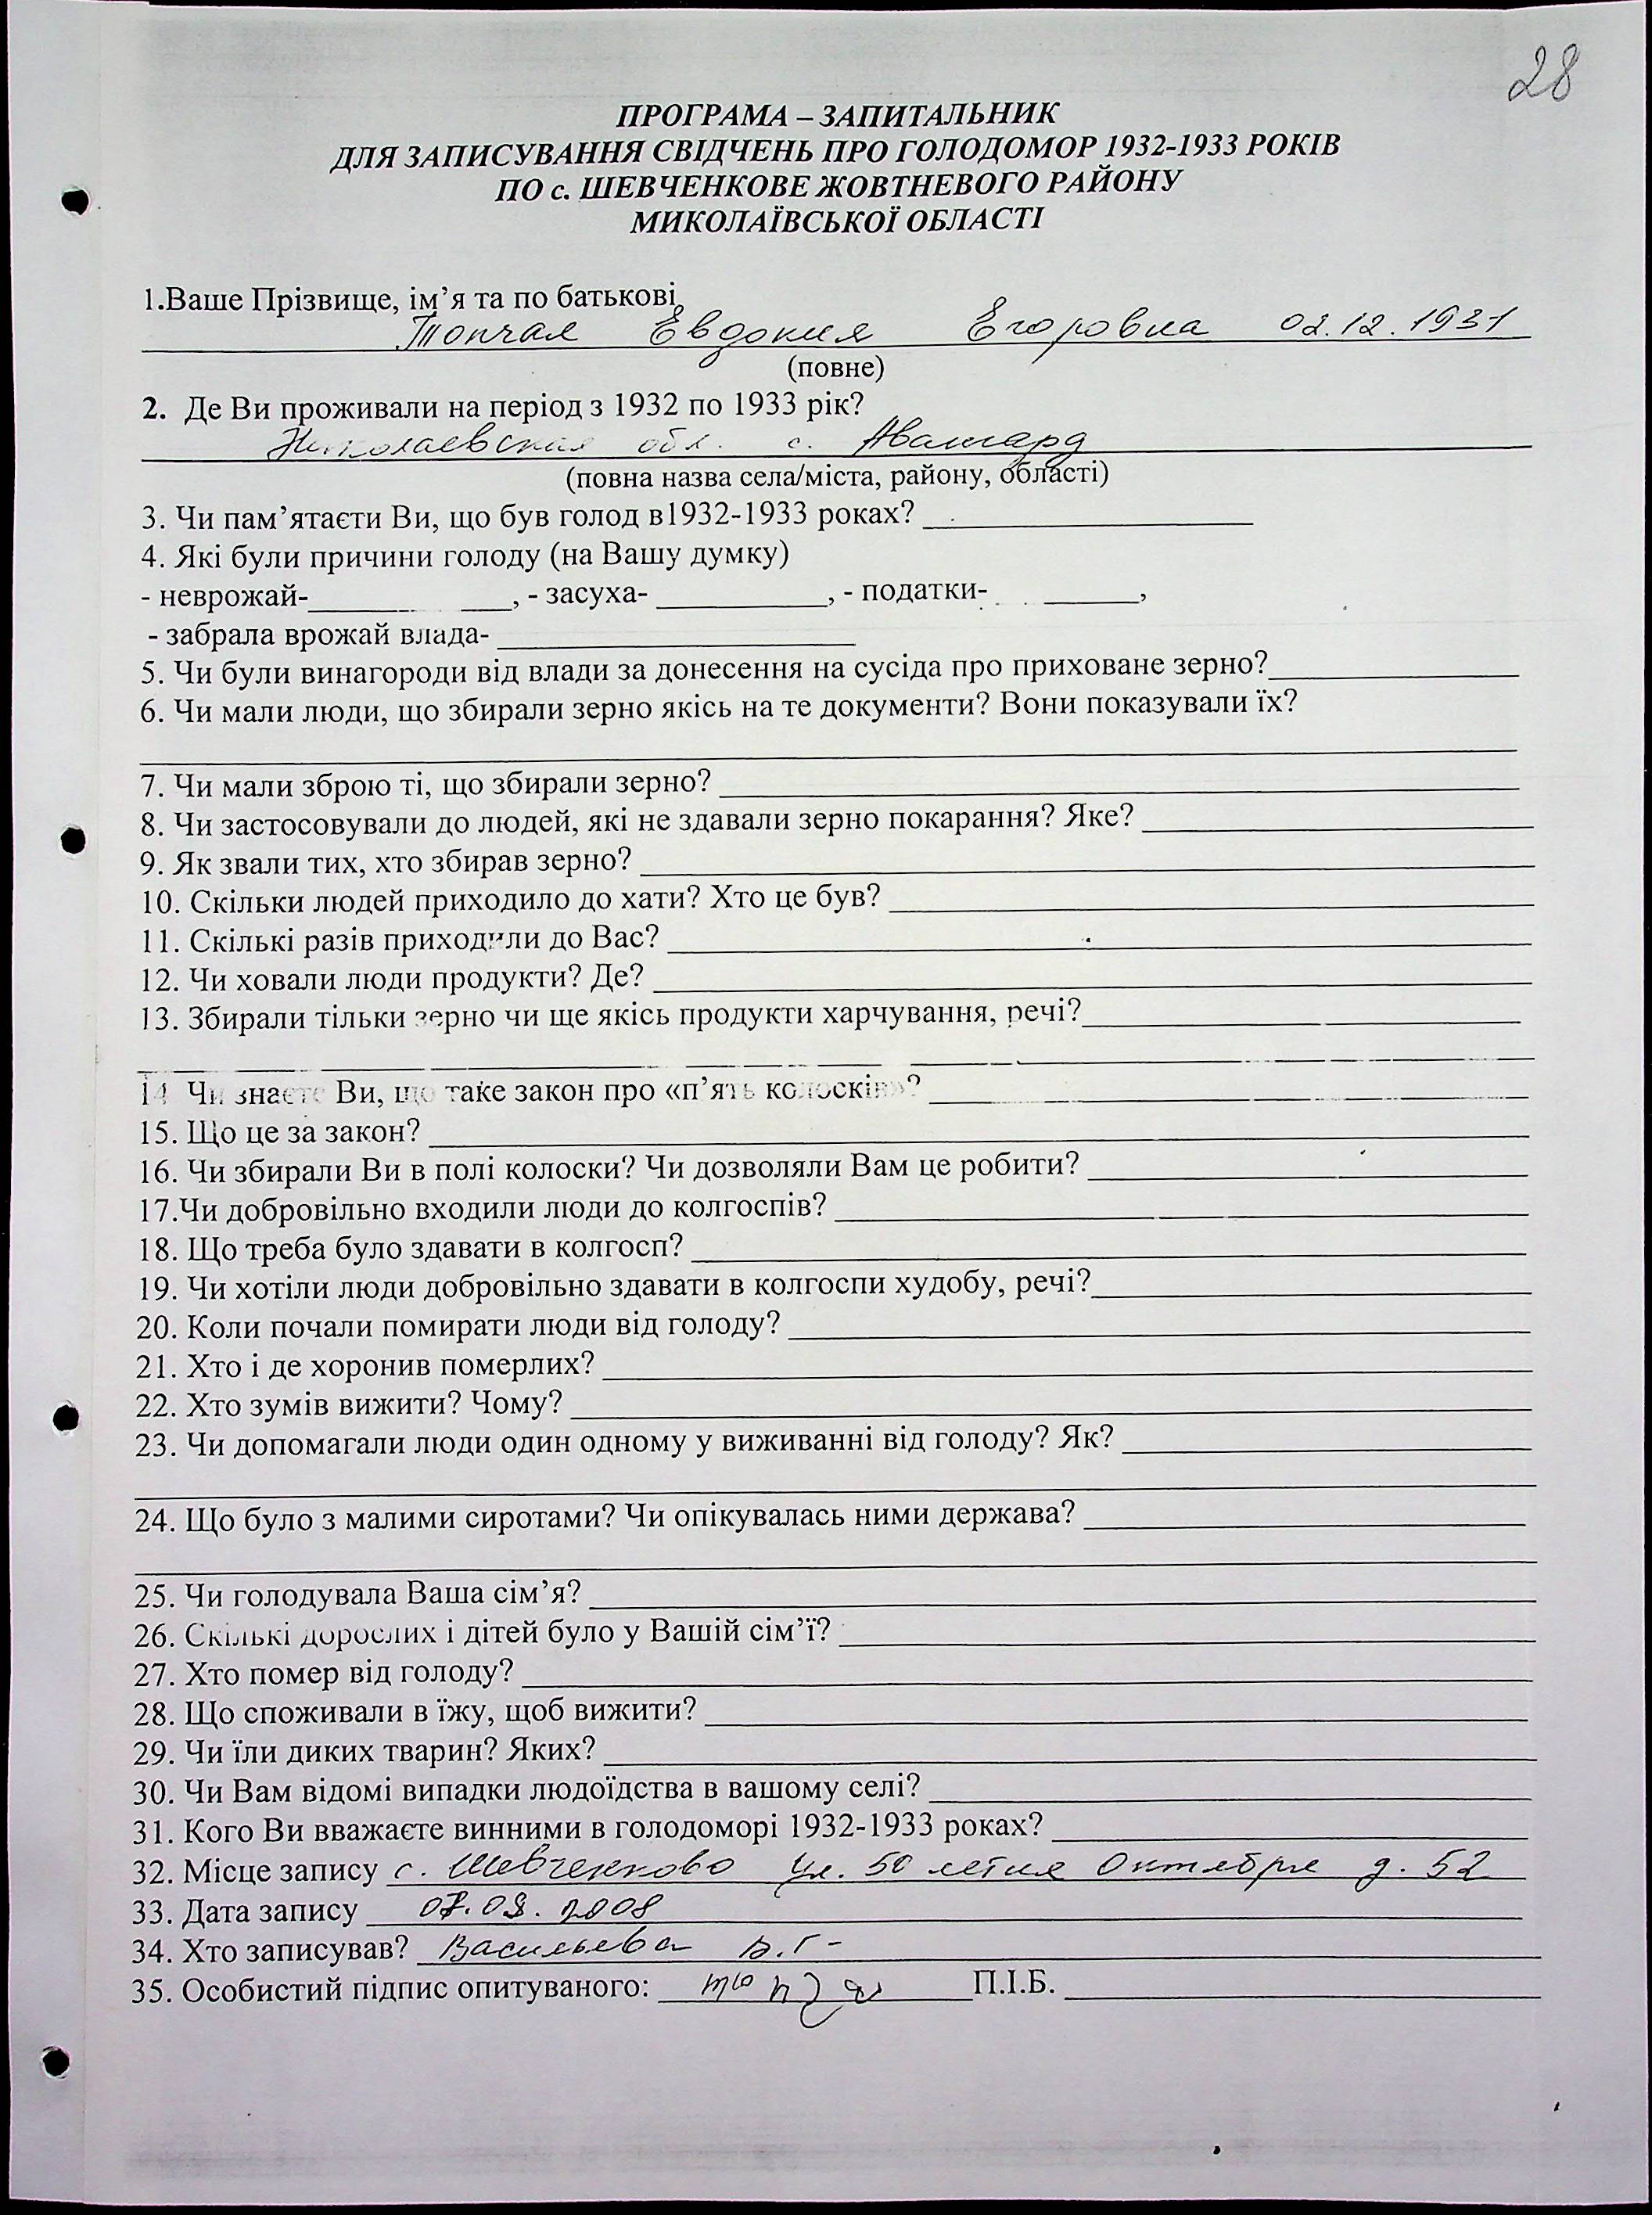 28
ПРОГРАМА – ЗАПИТАЛЬНИК
ДЛЯ ЗАПИСУВАННЯ СВІДЧЕНЬ ПРО ГОЛОДОМОР 1932-1933 РОКІВ
ПО с. ШЕВЧЕНКОВЕ ЖОВТНЕВОГО РАЙОНУ
МИКОЛАЇВСЬКОЇ ОБЛАСТІ
1.Ваше Прізвище, ім’я та по батькові
Топчая Евдокия Егоровна 02.12.1931
(повне)
2. Де Ви проживали на період з 1932 по 1933 рік?
Николаевская обл. с. Авангард
(повна назва села/міста, району, області)
3. Чи пам’ятаєти Ви, що був голод в1932-1933 роках?
4. Які були причини голоду (на Вашу думку)
- неврожай-____, - засуха-____, - податки-____,
- забрала врожай влада-
5. Чи були винагороди від влади за донесення на сусіда про приховане зерно?
6. Чи мали люди, що збирали зерно якісь на те документи? Вони показували їх?
7. Чи мали зброю ті, що збирали зерно?
8. Чи застосовували до людей, які не здавали зерно покарання? Яке?
9. Як звали тих, хто збирав зерно?
10. Скільки людей приходило до хати? Хто це був?
11. Скількі разів приходили до Вас?
12. Чи ховали люди продукти? Де?
13. Збирали тільки зерно чи ще якісь продукти харчування, речі?
14 Чи знаєте Ви, що таке закон про «п’ять колосків»?
15. Що це за закон?
16. Чи збирали Ви в полі колоски? Чи дозволяли Вам це робити?
17.Чи добровільно входили люди до колгоспів?
18. Що треба було здавати в колгосп?
19. Чи хотіли люди добровільно здавати в колгоспи худобу, речі?
20. Коли почали помирати люди від голоду?
21. Хто і де хоронив померлих?
22. Хто зумів вижити? Чому?
23. Чи допомагали люди один одному у виживанні від голоду? Як?
24. Що було з малими сиротами? Чи опікувалась ними держава?
25. Чи голодувала Ваша сім’я?
26. Скількі дорослих і дітей було у Вашій сім’ї?
27. Хто помер від голоду?
28. Що споживали в їжу, щоб вижити?
29. Чи їли диких тварин? Яких?
30. Чи Вам відомі випадки людоїдства в вашому селі?
31. Кого Ви вважаєте винними в голодоморі 1932-1933 роках?
32. Місце запису с. Шевченково ул. 50 летия Октября д. 52
33. Дата запису 07.09.2008
34. Хто записував? Васильева
35. Особистий підпис опитуваного: П.І.Б.